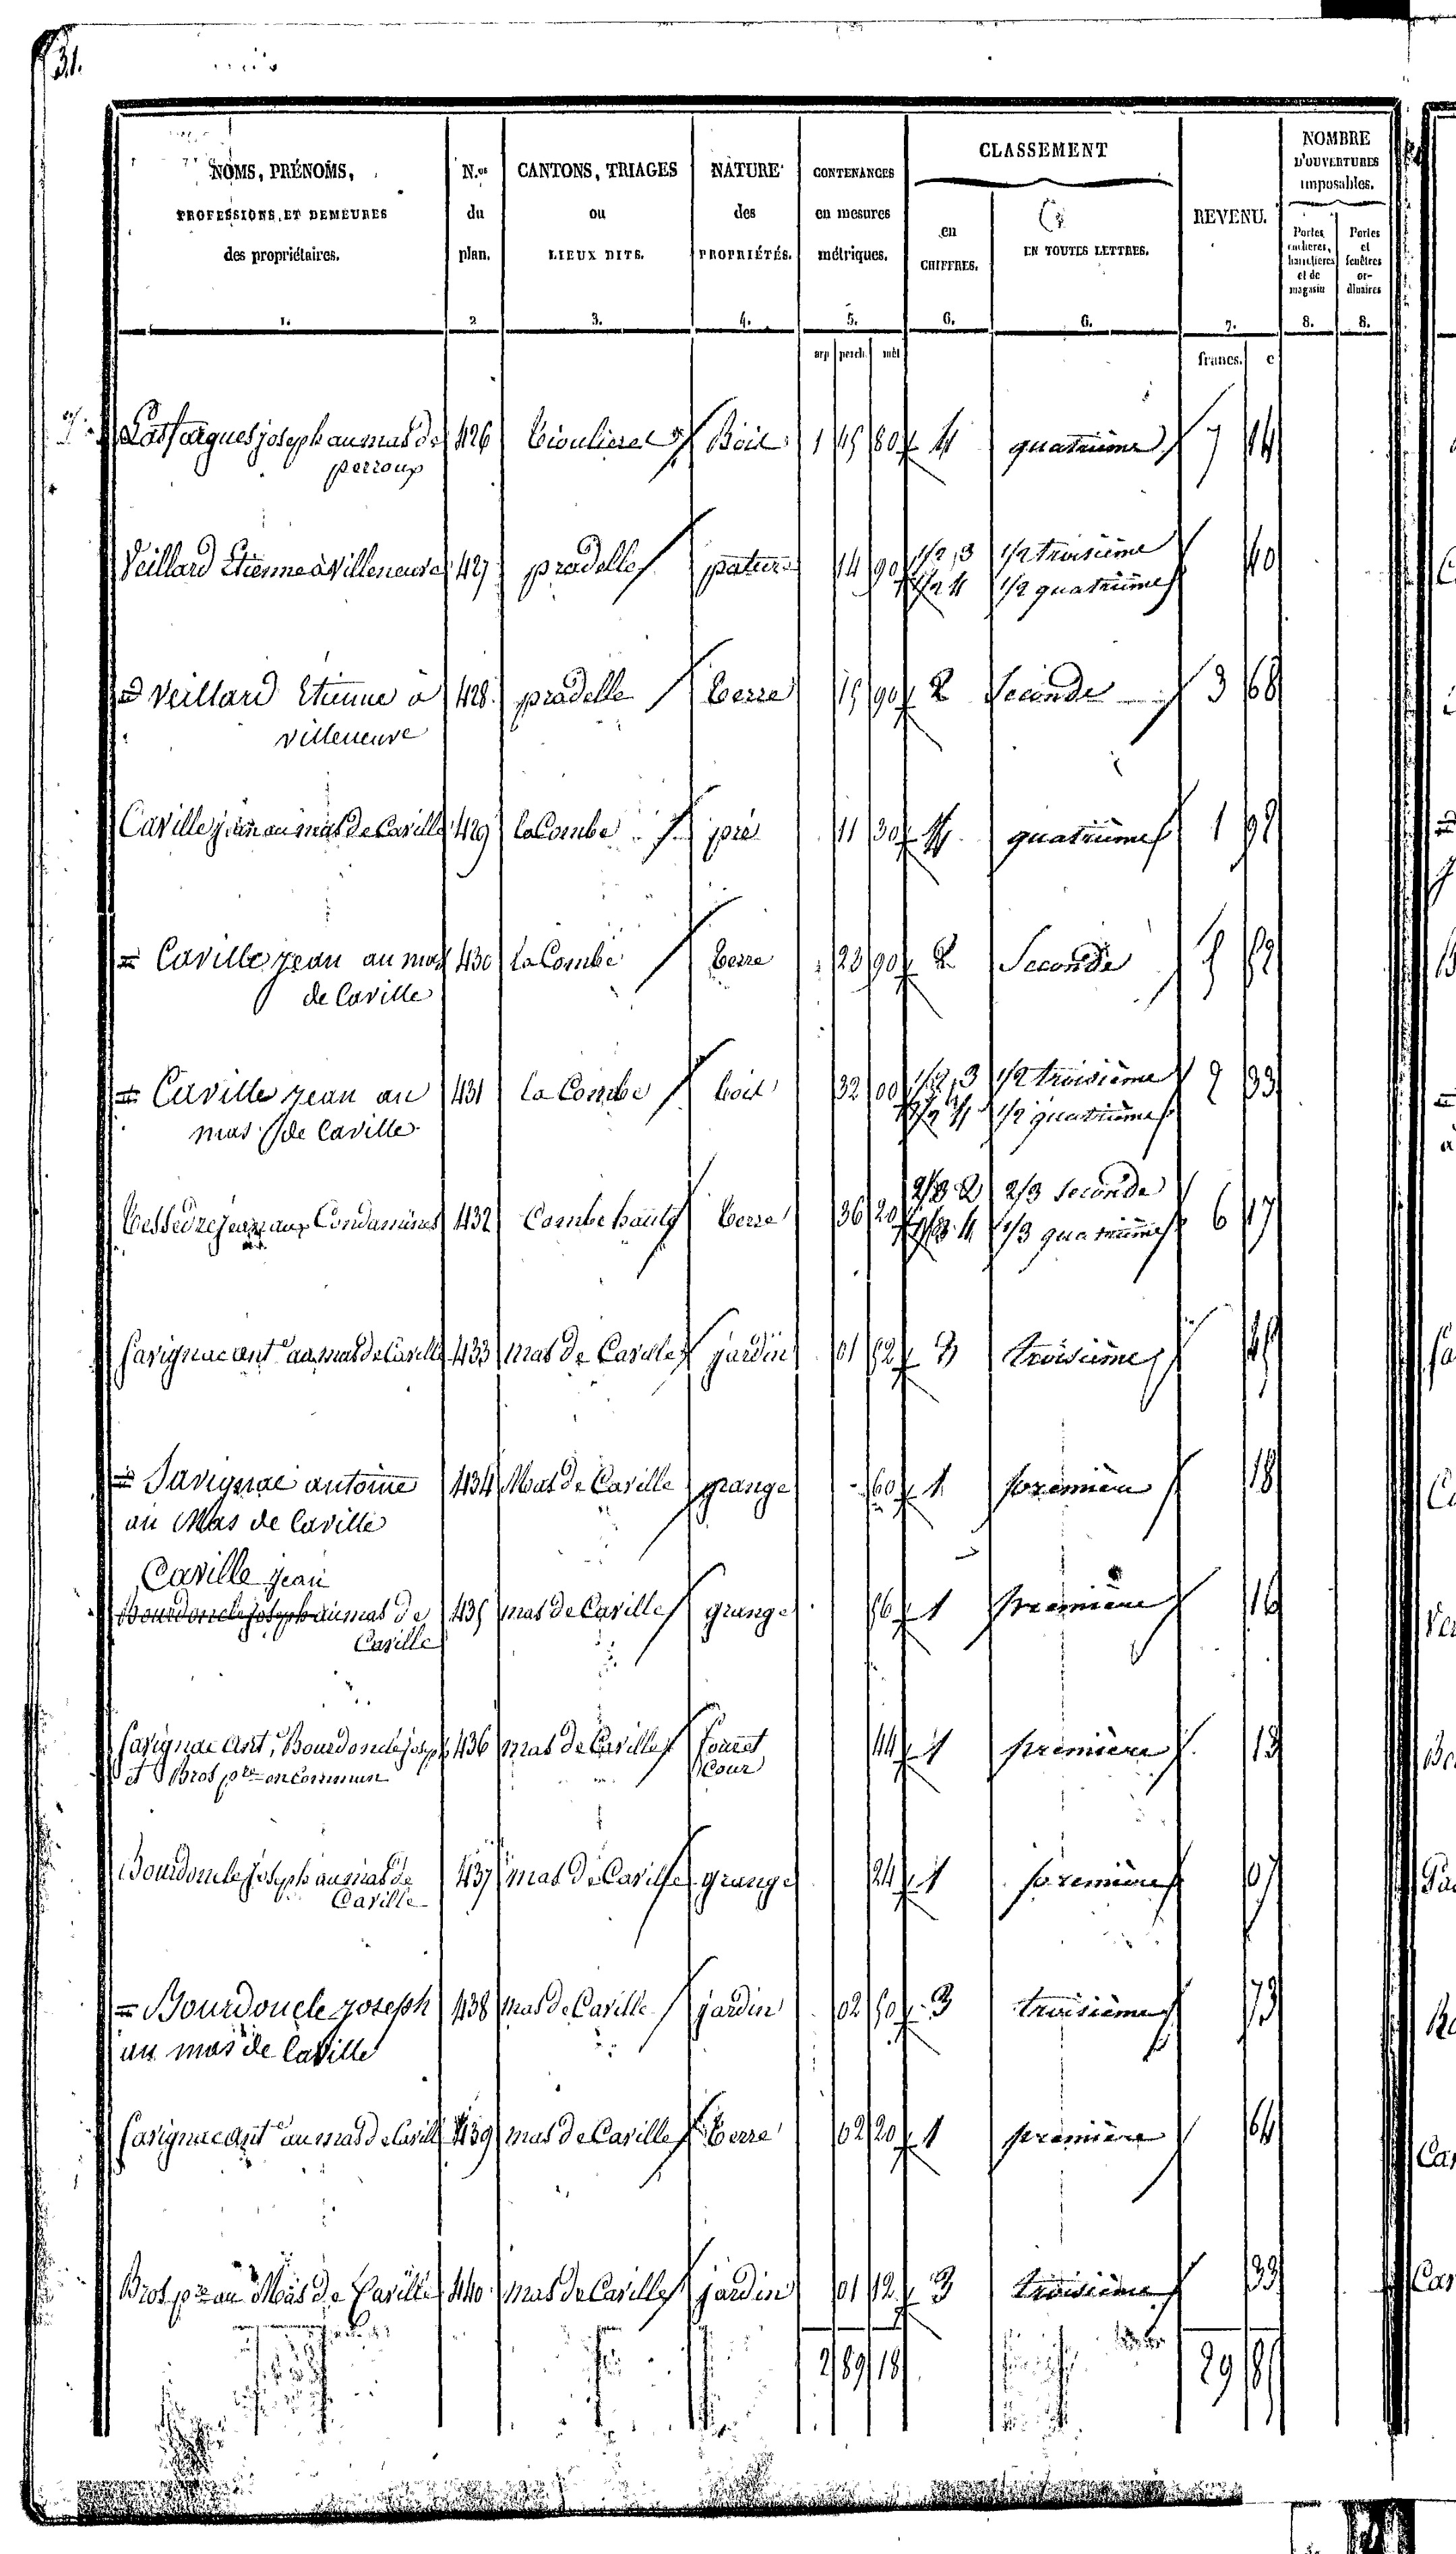 31.
NOMS, PRÉNOMS, PROFESSIONS, ET DEMEURES des propriétaires. N.os du plan. CANTONS, TRIAGES ou LIEUX DITS. NATURE des PROPRIÉTÉS. CONTENANCES en mesures métriques. CLASSEMENT en CHIFFRES. EN TOUTES LETTRES. REVENU. NOMBRE D'OUVERTURES imposables. Portes cochères, charretières et de magasin Portes et fenêtres ordinaires
1. 2 3. 4. 5. 6. 6. 7. 8. 8.
arp perch. mèt francs. c
Lasfargues joseph au mas de 426 Tioulieres Bois 1 45 80 4 quatrième 7 14
perroup
Veillard Etienne à Villeneuve 427 pradelle pature 14 90 1/2 3 1/2 troisième 40
1/2 4 1/2 quatrième
= Veillard Etienne à 428 pradelle terre 15 90 2 Seconde 3 68
villeneuve
Caville jean au mas de Caville 429 la Combe pré 11 30 4 quatrième 1 92
= Caville jean au mas 430 la Combe terre 23 90 2 Seconde 5 52
de Caville
= Caville jean au 431 la Combe bois 32 00 1/2 3 1/2 troisième 2 33
mas de Caville 1/2 4 1/2 quatrième
2/3 2 2/3 seconde
Tessedre jean aux Condamines 432 Combe haute terre 36 20 1/3 4 1/3 quatrième 6 17
Savignac ant.e au mas de Caville 433 mas de Caville jardin 01 52 3 troisième 45
= Savignac antoine 434 Mas de Caville grange 60 1 première 18
au Mas de Caville
Caville jean
Bourdoncle joseph au mas de 435 mas de Caville grange 56 1 première 16
Caville
Savignac Ant, Bourdoncle joseph 436 mas de Caville four et 44 1 première 13
et Bros p.re en commun cour
Bourdoncle joseph au mas de 437 mas de Caville grange 24 1 première 07
Caville
= Bourdoncle joseph 438 mas de Caville jardin 02 50 3 troisième 73
au mas de Caville
Savignac Ant.e au mas de Caville 439 mas de Caville terre 02 20 1 première 64
Bros p.re au Mas de Caville 440 mas de Caville jardin 01 12 3 troisième 33
2 89 18 29 85